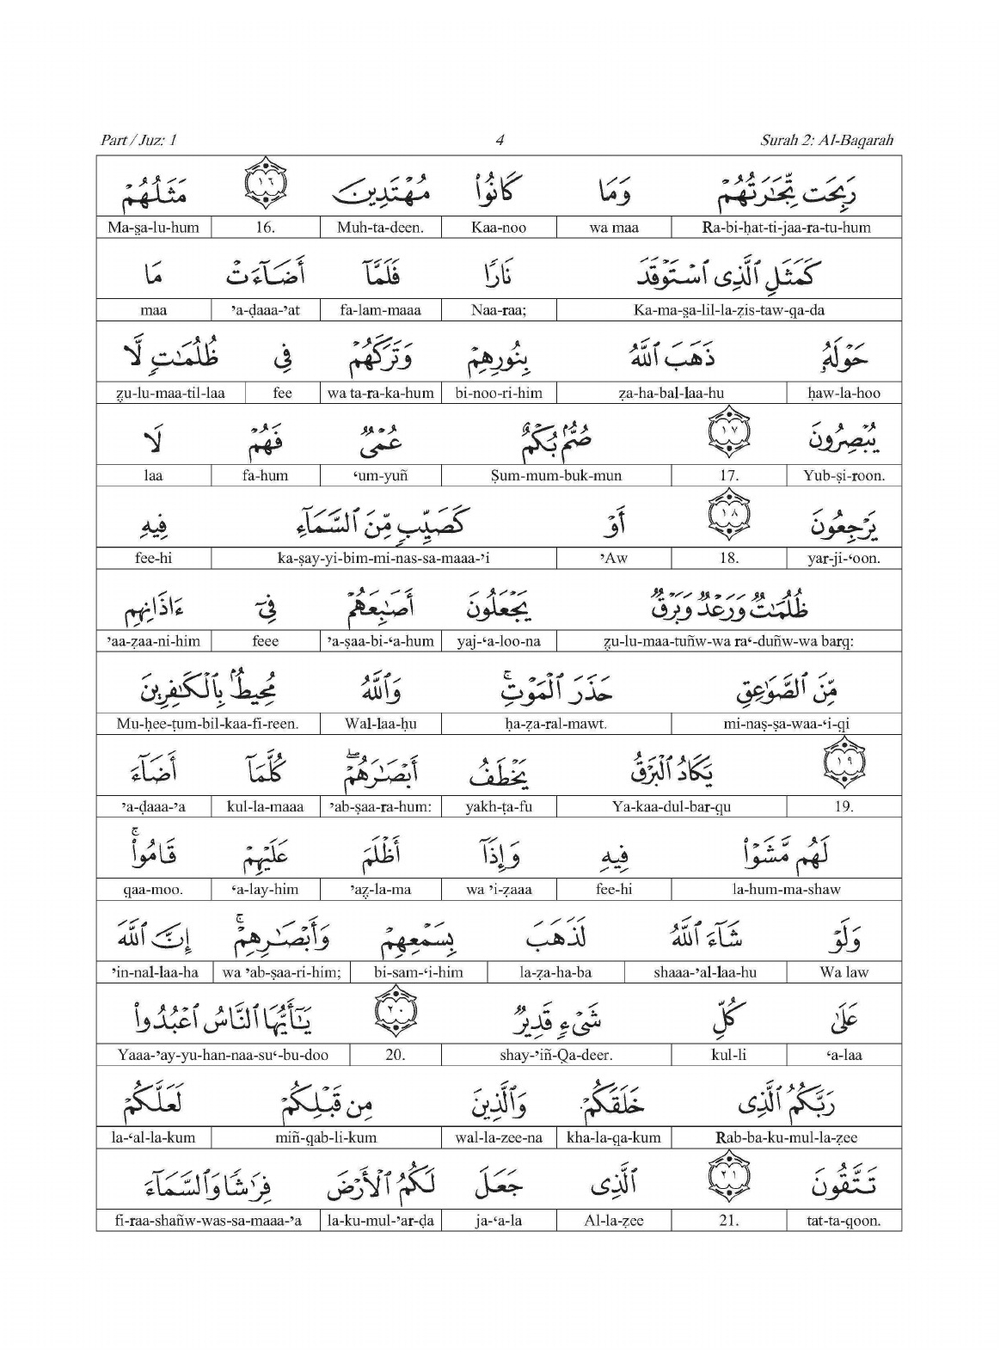 Part / Juz: 1 4 Surah 2: Al-Baqarah
رَبِحَت تِّجَٰرَتُهُمۡ وَمَا كَانُواْ مُهۡتَدِينَ ١٦ مَثَلُهُمۡ
Ma-ṣa-lu-hum 16. Muh-ta-deen. Kaa-noo wa maa Ra-bi-ḥat-ti-jaa-ra-tu-hum
كَمَثَلِ ٱلَّذِي ٱسۡتَوۡقَدَ نَارٗا فَلَمَّآ أَضَآءَتۡ مَا
maa ’a-ḍaaa-’at fa-lam-maaa Naa-raa; Ka-ma-ṣa-lil-la-ẓis-taw-qa-da
حَوۡلَهُۥ ذَهَبَ ٱللَّهُ بِنُورِهِمۡ وَتَرَكَهُمۡ فِي ظُلُمَٰتٖ لَّا
ẓu-lu-maa-til-laa fee wa ta-ra-ka-hum bi-noo-ri-him ẓa-ha-bal-laa-hu ḥaw-la-hoo
يُبۡصِرُونَ ١٧ صُمُّۢ بُكۡمٌ عُمۡيٞ فَهُمۡ لَا
laa fa-hum ‘um-yuñ Ṣum-mum-buk-mun 17. Yub-ṣi-roon.
يَرۡجِعُونَ ١٨ أَوۡ كَصَيِّبٖ مِّنَ ٱلسَّمَآءِ فِيهِ
fee-hi ka-ṣay-yi-bim-mi-nas-sa-maaa-’i ’Aw 18. yar-ji-‘oon.
ظُلُمَٰتٞ وَرَعۡدٞ وَبَرۡقٞ يَجۡعَلُونَ أَصَٰبِعَهُمۡ فِيٓ ءَاذَانِهِم
’aa-ẓaa-ni-him feee ’a-ṣaa-bi-‘a-hum yaj-‘a-loo-na ẓu-lu-maa-tuñw-wa ra‘-duñw-wa barq:
مِّنَ ٱلصَّوَٰعِقِ حَذَرَ ٱلۡمَوۡتِۚ وَٱللَّهُ مُحِيطُۢ بِٱلۡكَٰفِرِينَ
Mu-ḥee-ṭum-bil-kaa-fi-reen. Wal-laa-hu ḥa-ẓa-ral-mawt. mi-naṣ-ṣa-waa-‘i-qi
١٩ يَكَادُ ٱلۡبَرۡقُ يَخۡطَفُ أَبۡصَٰرَهُمۡۖ كُلَّمَآ أَضَآءَ
’a-ḍaaa-’a kul-la-maaa ’ab-ṣaa-ra-hum: yakh-ṭa-fu Ya-kaa-dul-bar-qu 19.
لَهُم مَّشَوۡاْ فِيهِ وَإِذَآ أَظۡلَمَ عَلَيۡهِمۡ قَامُواْۚ
qaa-moo. ‘a-lay-him ’aẓ-la-ma wa ’i-ẓaaa fee-hi la-hum-ma-shaw
وَلَوۡ شَآءَ ٱللَّهُ لَذَهَبَ بِسَمۡعِهِمۡ وَأَبۡصَٰرِهِمۡۚ إِنَّ ٱللَّهَ
’in-nal-laa-ha wa ’ab-ṣaa-ri-him; bi-sam-‘i-him la-ẓa-ha-ba shaaa-’al-laa-hu Wa law
عَلَىٰ كُلِّ شَيۡءٖ قَدِيرٞ ٢٠ يَٰٓأَيُّهَا ٱلنَّاسُ ٱعۡبُدُواْ
Yaaa-’ay-yu-han-naa-su‘-bu-doo 20. shay-’iñ-Qa-deer. kul-li ‘a-laa
رَبَّكُمُ ٱلَّذِي خَلَقَكُمۡ وَٱلَّذِينَ مِن قَبۡلِكُمۡ لَعَلَّكُمۡ
la-‘al-la-kum miñ-qab-li-kum wal-la-ẓee-na kha-la-qa-kum Rab-ba-ku-mul-la-ẓee
تَتَّقُونَ ٢١ ٱلَّذِي جَعَلَ لَكُمُ ٱلۡأَرۡضَ فِرَٰشٗا وَٱلسَّمَآءَ
fi-raa-shañw-was-sa-maaa-’a la-ku-mul-’ar-ḍa ja-‘a-la Al-la-ẓee 21. tat-ta-qoon.